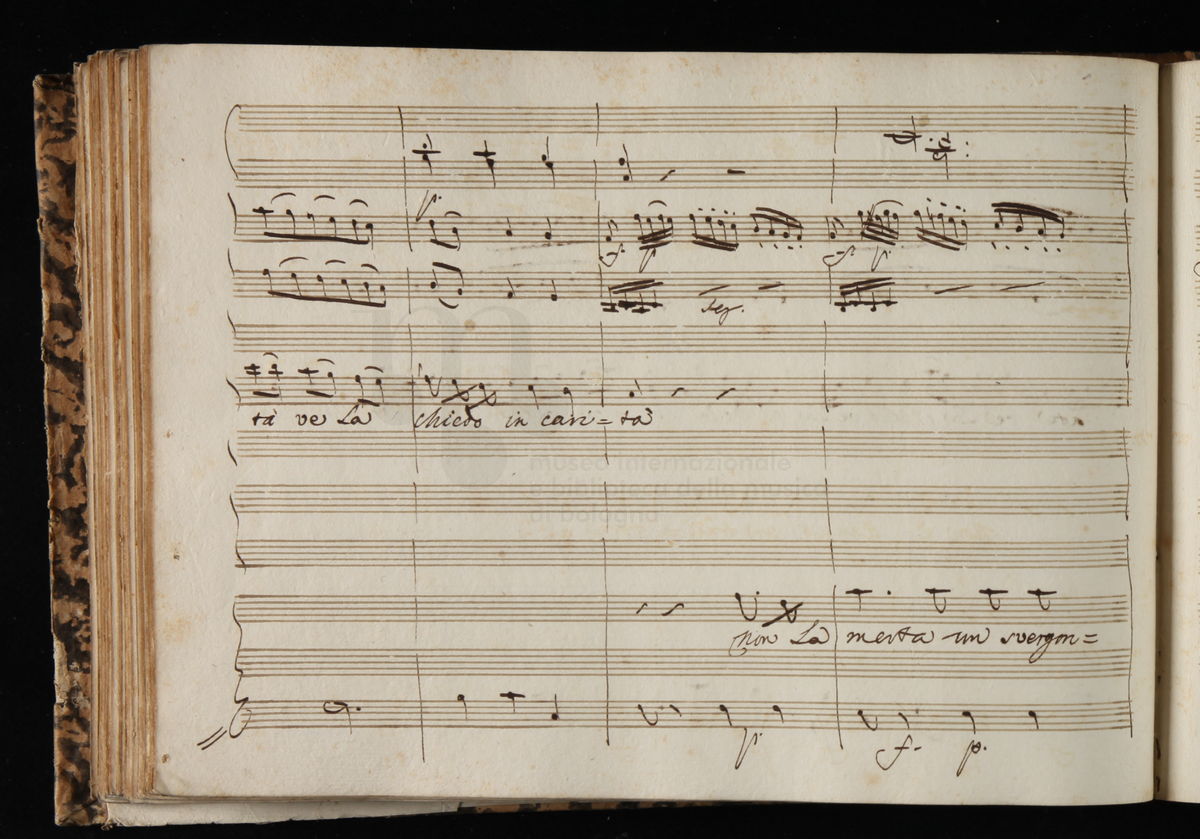 p.
f. p f. p
seg.
tà ve la chiedo in cari=tà
museo internazionale
e biblioteca della musica
di bologna
non la merta un svergon=
p. f. p.